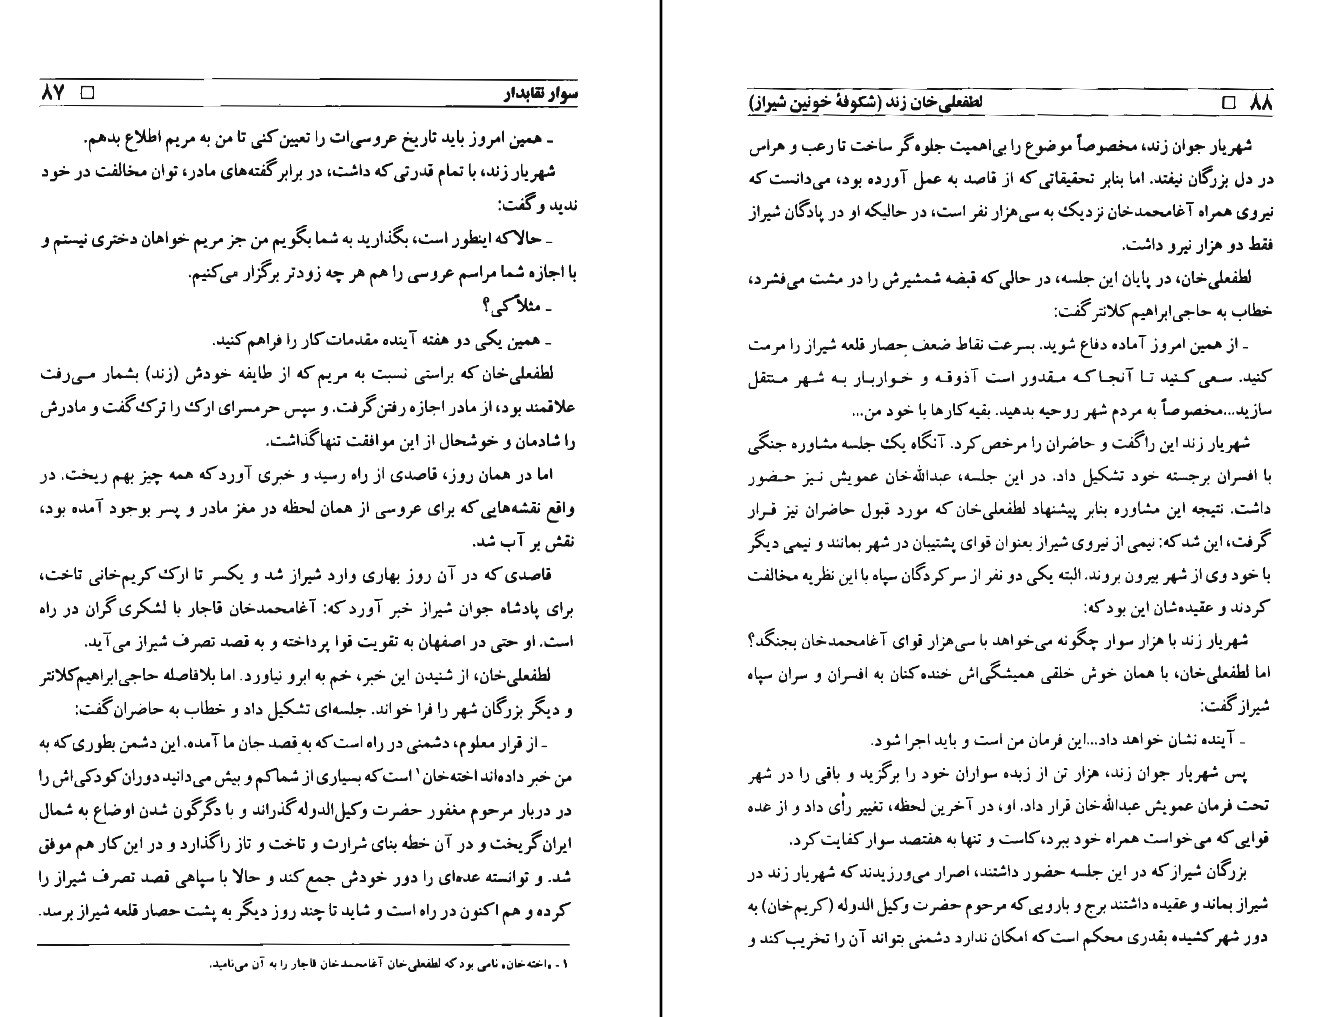 سوار نقابدار □ ۸۷
ـ همین امروز باید تاریخ عروسی‌ات را تعیین کنی تا من به مریم اطلاع بدهم.
شهریار زند، با تمام قدرتی که داشت، در برابر گفته‌های مادر، توان مخالفت در خود
ندید و گفت:
ـ حالا که اینطور است، بگذارید به شما بگویم من جز مریم خواهان دختری نیستم و
با اجازه شما مراسم عروسی را هم هر چه زودتر برگزار می‌کنیم.
ـ مثلاً کی؟
ـ همین یکی دو هفته آینده مقدمات کار را فراهم کنید.
لطفعلی‌خان که براستی نسبت به مریم که از طایفه خودش (زند) بشمار می‌رفت
علاقمند بود، از مادر اجازه رفتن گرفت. و سپس حرمسرای ارک را ترک گفت و مادرش
را شادمان و خوشحال از این موافقت تنها گذاشت.
اما در همان روز، قاصدی از راه رسید و خبری آورد که همه چیز بهم ریخت. در
واقع نقشه‌هایی که برای عروسی از همان لحظه در مغز مادر و پسر بوجود آمده بود،
نقش بر آب شد.
قاصدی که در آن روز بهاری وارد شیراز شد و یکسر تا ارک کریم‌خانی تاخت،
برای پادشاه جوان شیراز خبر آورد که: آغامحمدخان قاجار با لشکری گران در راه
است. او حتی در اصفهان به تقویت قوا پرداخته و به قصد تصرف شیراز می‌آید.
لطفعلی‌خان، از شنیدن این خبر، خم به ابرو نیاورد. اما بلافاصله حاجی‌ابراهیم‌کلانتر
و دیگر بزرگان شهر را فرا خواند. جلسه‌ای تشکیل داد و خطاب به حاضران گفت:
ـ از قرار معلوم، دشمنی در راه است که به قصد جان ما آمده. این دشمن بطوری که به
من خبر داده‌اند اخته‌خان۱ است که بسیاری از شما کم و بیش می‌دانید دوران کودکی‌اش را
در دربار مرحوم مغفور حضرت وکیل‌الدوله گذراند و با دگرگون شدن اوضاع به شمال
ایران گریخت و در آن خطه بنای شرارت و تاخت و تاز را گذارد و در این کار هم موفق
شد. و توانسته عده‌ای را دور خودش جمع کند و حالا با سپاهی قصد تصرف شیراز را
کرده و هم اکنون در راه است و شاید تا چند روز دیگر به پشت حصار قلعه شیراز برسد.
۱ ـ «اخته‌خان» نامی بود که لطفعلی‌خان آغامحمدخان قاجار را به آن می‌نامید.
۸۸ □ لطفعلی‌خان زند (شکوفهٔ خونین شیراز)
شهریار جوان زند، مخصوصاً موضوع را بی‌اهمیت جلوه‌گر ساخت تا رعب و هراس
در دل بزرگان نیفتد. اما بنابر تحقیقاتی که از قاصد به عمل آورده بود، می‌دانست که
نیروی همراه آغامحمدخان نزدیک به سی‌هزار نفر است، در حالیکه او در پادگان شیراز
فقط دو هزار نیرو داشت.
لطفعلی‌خان، در پایان این جلسه، در حالی که قبضه شمشیرش را در مشت می‌فشرد،
خطاب به حاجی‌ابراهیم کلانتر گفت:
ـ از همین امروز آماده دفاع شوید. بسرعت نقاط ضعف حصار قلعه شیراز را مرمت
کنید. سعی کنید تا آنجا که مقدور است آذوقه و خواربار به شهر منتقل
سازید...مخصوصاً به مردم شهر روحیه بدهید. بقیه کارها با خود من...
شهریار زند این را گفت و حاضران را مرخص کرد. آنگاه یک جلسه مشاوره جنگی
با افسران برجسته خود تشکیل داد. در این جلسه، عبدالله‌خان عمویش نیز حضور
داشت. نتیجه این مشاوره بنابر پیشنهاد لطفعلی‌خان که مورد قبول حاضران نیز قرار
گرفت، این شد که: نیمی از نیروی شیراز بعنوان قوای پشتیبان در شهر بمانند و نیمی دیگر
با خود وی از شهر بیرون بروند. البته یکی دو نفر از سرکردگان سپاه با این نظریه مخالفت
کردند و عقیده‌شان این بود که:
شهریار زند با هزار سوار چگونه می‌خواهد با سی‌هزار قوای آغامحمدخان بجنگد؟
اما لطفعلی‌خان، با همان خوش خلقی همیشگی‌اش خنده‌کنان به افسران و سران سپاه
شیراز گفت:
ـ آینده نشان خواهد داد...این فرمان من است و باید اجرا شود.
پس شهریار جوان زند، هزار تن از زبده سواران خود را برگزید و باقی را در شهر
تحت فرمان عمویش عبدالله‌خان قرار داد. او، در آخرین لحظه، تغییر رأی داد و از عده
قوایی که می‌خواست همراه خود ببرد، کاست و تنها به هفتصد سوار کفایت کرد.
بزرگان شیراز که در این جلسه حضور داشتند، اصرار می‌ورزیدند که شهریار زند در
شیراز بماند و عقیده داشتند برج و بارویی که مرحوم حضرت وکیل الدوله (کریم‌خان) به
دور شهر کشیده بقدری محکم است که امکان ندارد دشمنی بتواند آن را تخریب کند و